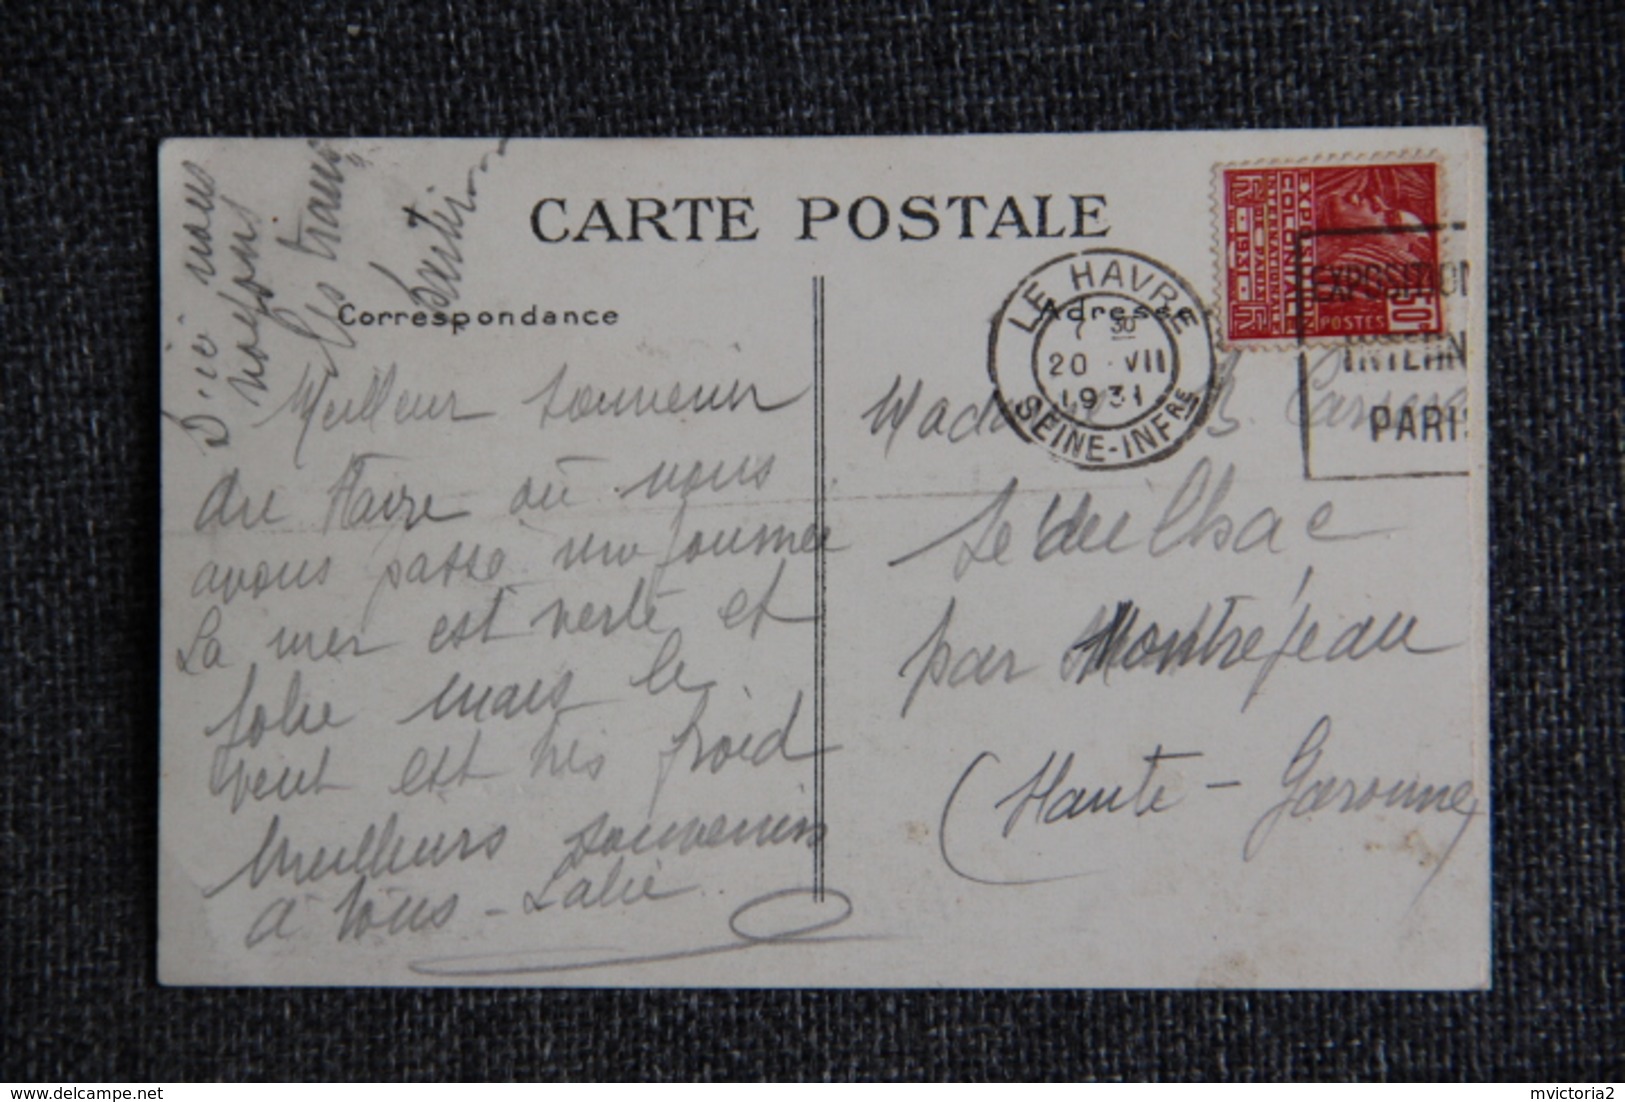 CARTE POSTALE
Correspondance
Adresse
D'ici nous
voyons
les trans
Meilleur souvenir
du Havre où nous
avons passé une journée
La mer est verte et
jolie mais le
vent est très froid
Meilleurs souvenirs
à tous - Lalie
LE HAVRE
7 30
20 VII
1931
SEINE-INFRE
EXPOSITION
COLONIALE
INTERNATIONALE
DE PARIS
1931
POSTES
50c
EXPOSITION
INTERN
PARIS
Madame B.
par Montréjeau
(Haute-Garonne)
delcampe.net
mvictoria2